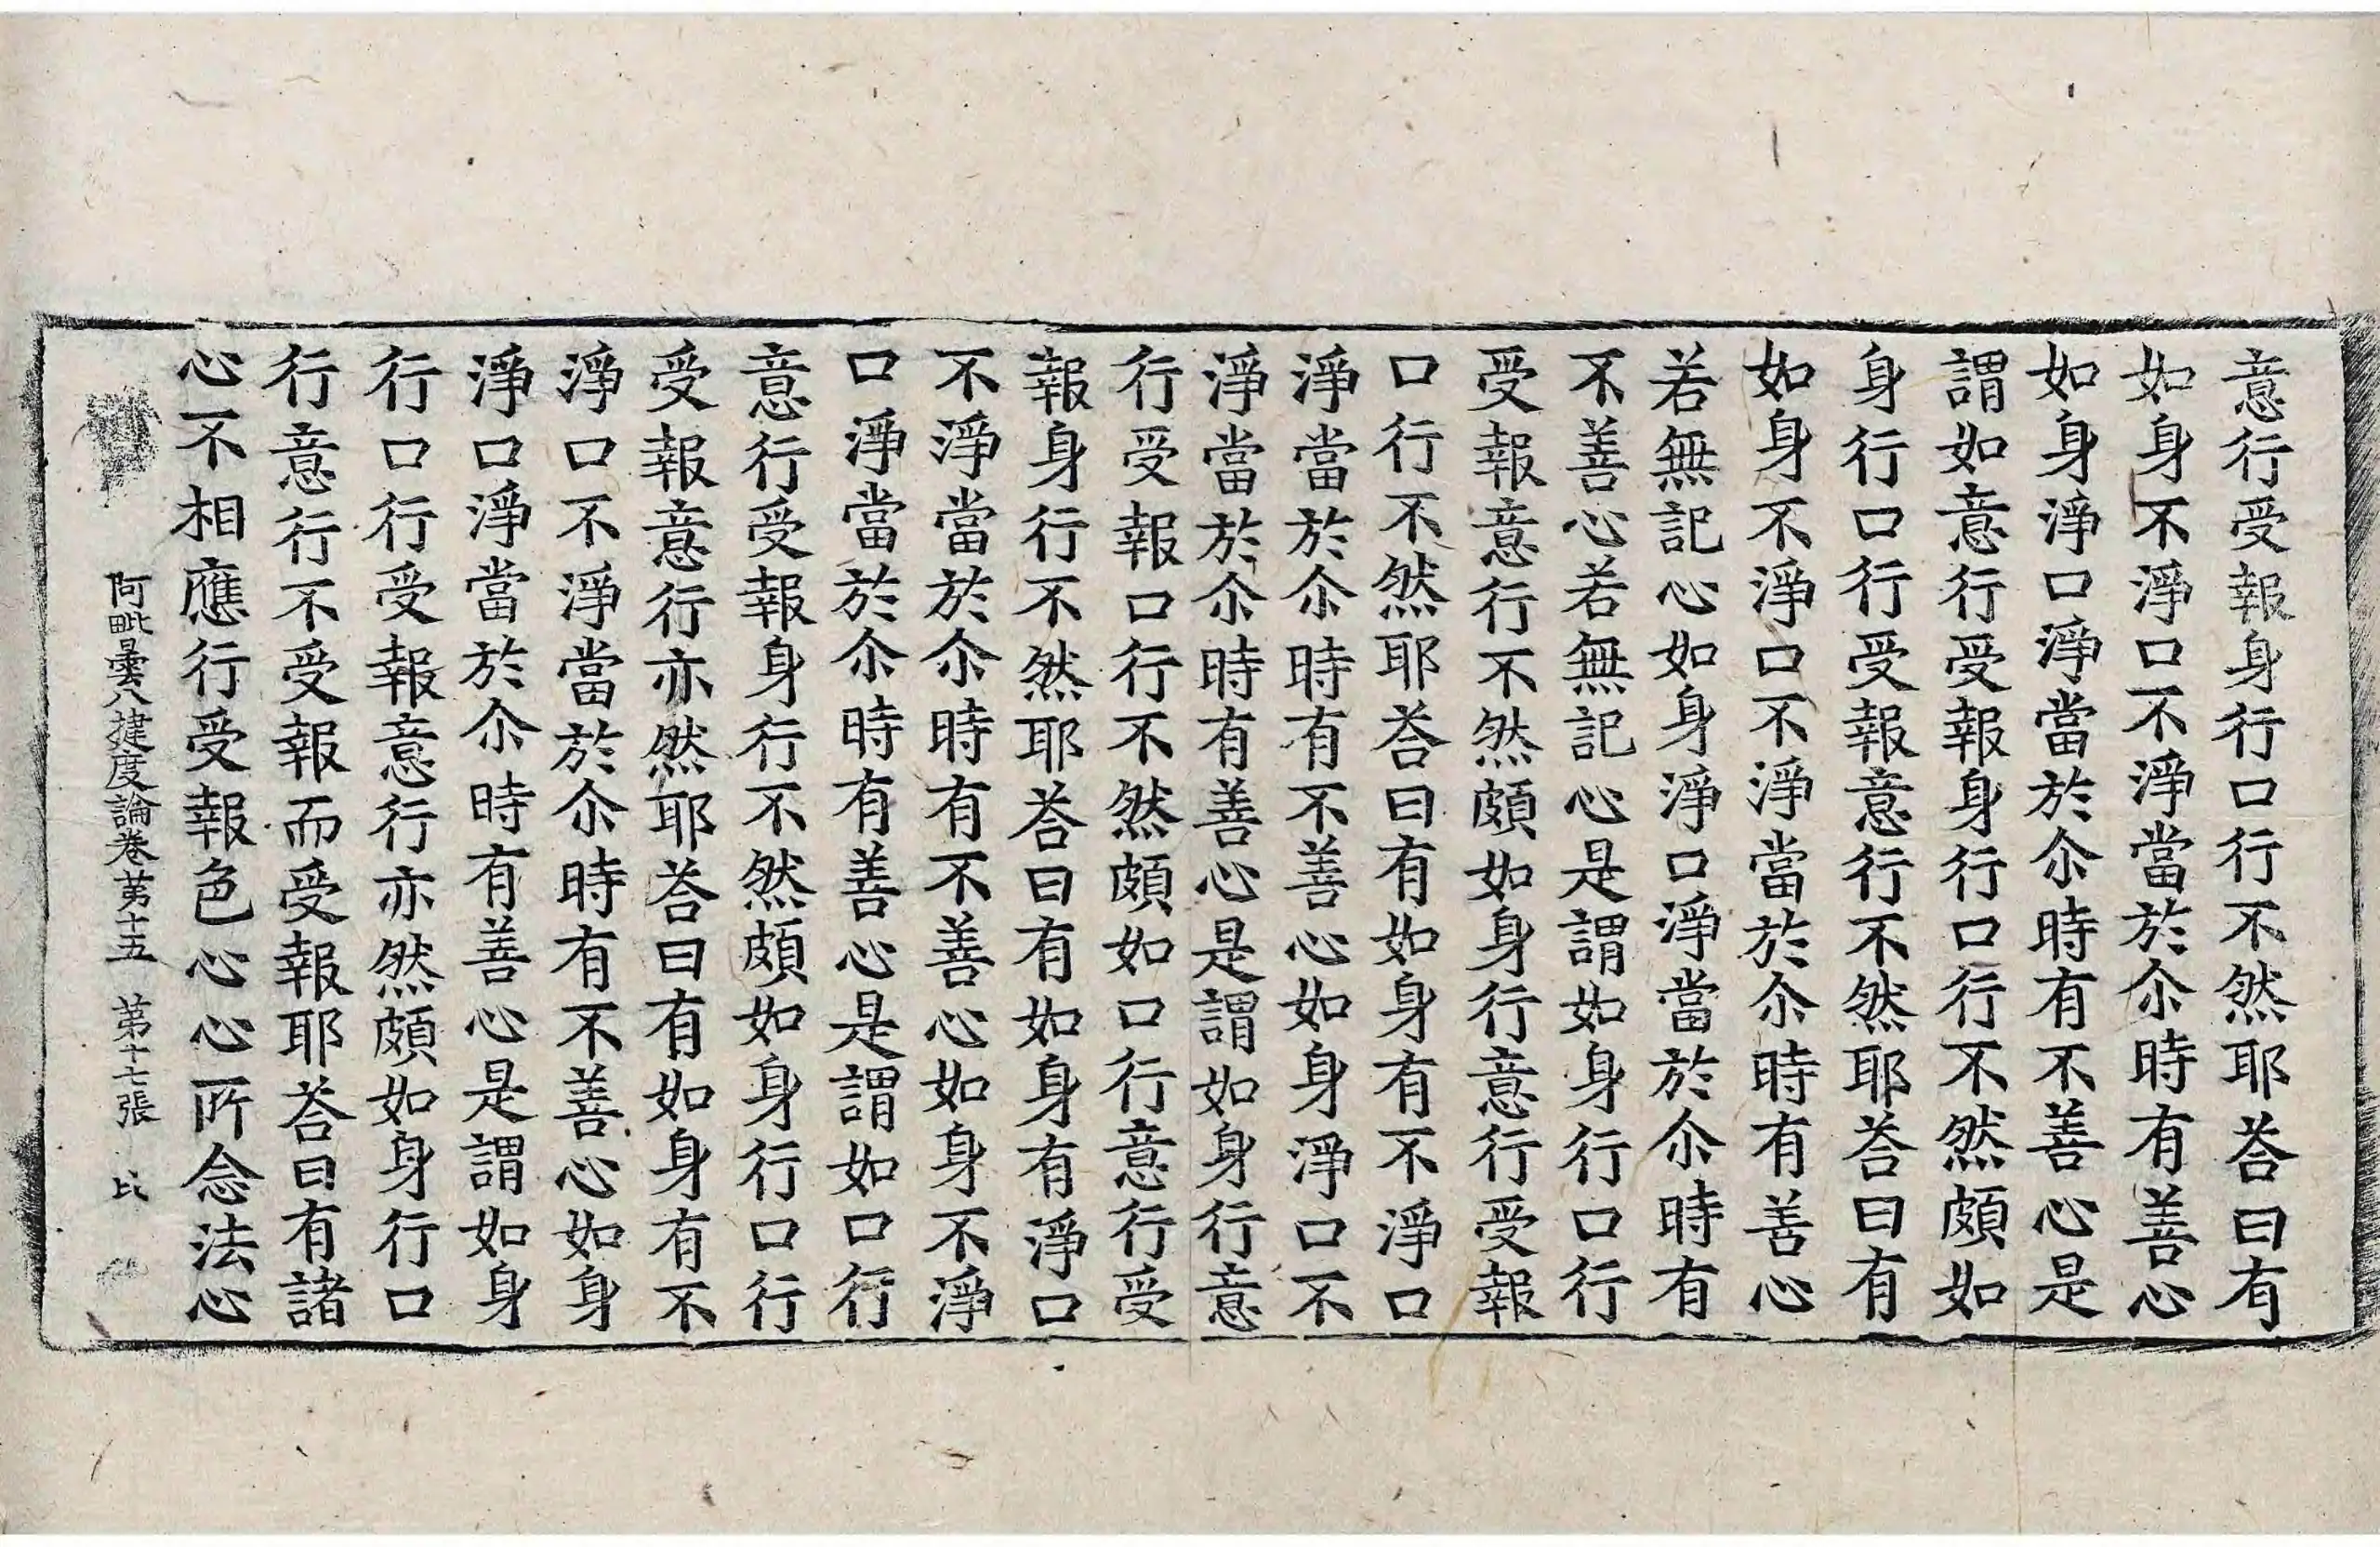 意行受報身行口行不然耶荅曰有
如身不淨口不淨當於尒時有善心
如身淨口淨當於尒時有不善心是
謂如意行受報身行口行不然頗如
身行口行受報意行不然耶荅曰有
如身不淨口不淨當於尒時有善心
若無記心如身淨口淨當於尒時有
不善心若無記心是謂如身行口行
受報意行不然頗如身行意行受報
口行不然耶荅曰有如身有不淨口
淨當於尒時有不善心如身淨口不
淨當於尒時有善心是謂如身行意
行受報口行不然頗如口行意行受
報身行不然耶荅曰有如身有淨口
不淨當於尒時有不善心如身不淨
口淨當於尒時有善心是謂如口行
意行受報身行不然頗如身行口行
受報意行亦然耶荅曰有如身有不
淨口不淨當於尒時有不善心如身
淨口淨當於尒時有善心是謂如身
行口行受報意行亦然頗如身行口
行意行不受報而受報耶荅曰有諸
心不相應行受報色心心所念法心
阿毗曇八揵度論卷第十五　第十七張